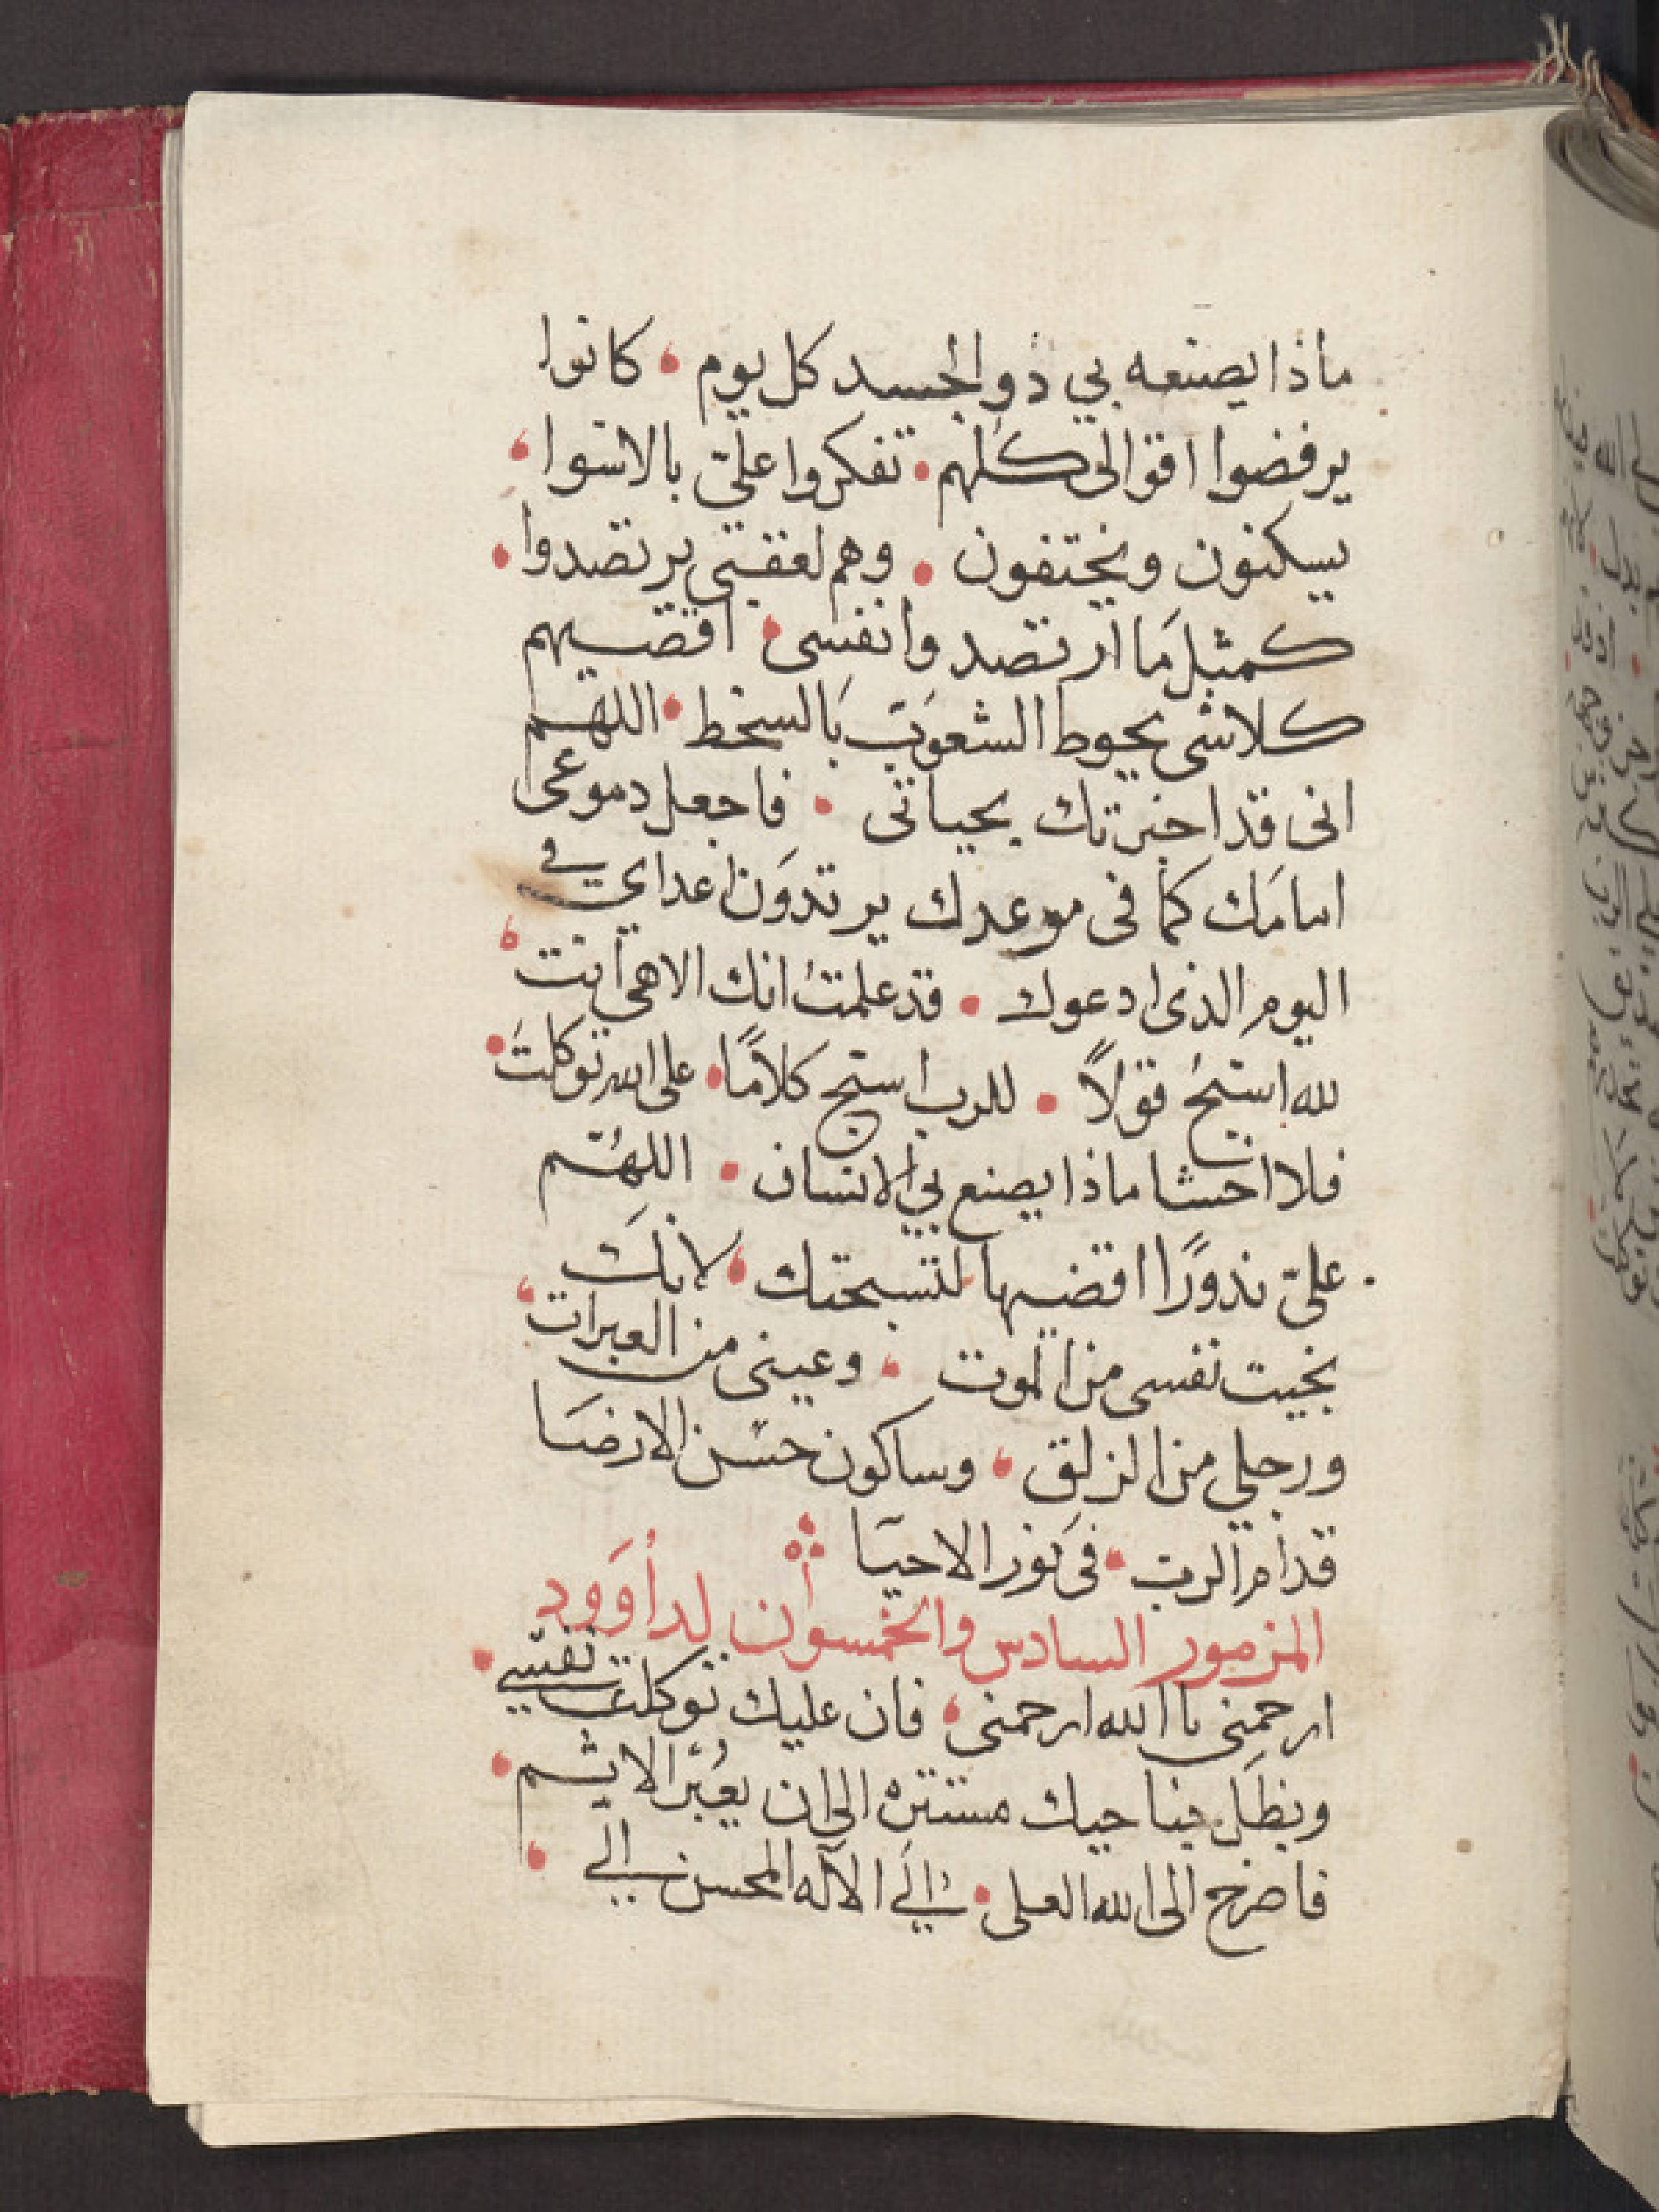 ماذا يصنعه بي ذو الجسد كل يوم • كانوا
يرفضوا اقوالى كلهم • تفكروا علىّ بالاسوا •
يسكنون ويختفون • وهم لعقبتى يرتصدوا •
كمثل ما ارتصدوا نفسى • اقصيهم
كلاشى يحوط الشعوب بالسخط • اللهم
انى قد اخبرتك بحياتى • فاجعل دموعى
امامك كما فى موعدك يرتدون اعداي في
اليوم الذى ادعوك • قد علمتُ انك الاهي انت •
لله استبحُ قولاً • للرب استبح كلامًا • على الله توكلت •
فلا اخشا ماذا يصنع بي الانسان • اللهُمّ
علىّ نذورًا اقضيها لتسبحتك • لانك
نجيت نفسى من الموت • وعينى من العبرات •
ورجلي من الزلق • وساكون حسن الارضا
قدام الرب • فى نور الاحيا
المزمور السادس والخمسون لداوود
ارحمنى يا الله ارحمنى • فان عليك توكلت نفسي •
وبظل جناحيك مستتره الى ان يعبُر الاثم •
فاصرخ الى الله العلى • الي الاله المحسن الي •